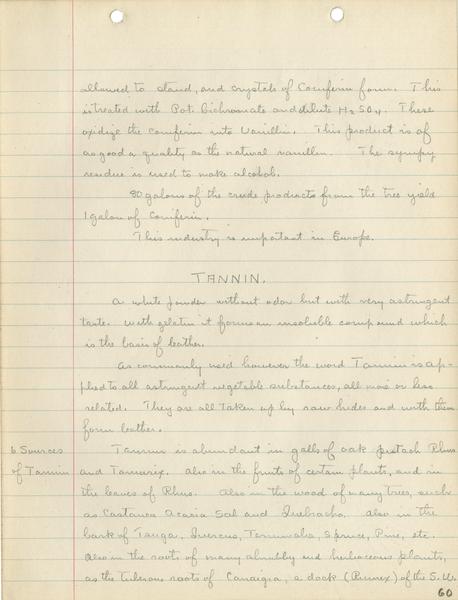 allowed to stand, and crystals of Coniferin form. This
is treated with Pot. bichromate and dilute H2SO4. These
oxidize the coniferin into Vanillin. This product is of
as good a quality as the natural vanillin. The syrupy
residue is used to make alcohol.
80 galons of the crude products from the tree yield
1 galon of Coniferin.
This industry is important in Europe.
TANNIN.
A white powder without odor but with very astringent
taste. With gelatin it forms an insoluble compound which
is the basis of leather.
As commonly used however the word Tannin is ap-
plied to all astringent vegetable substances, all more or less
related. They are all taken up by raw hides and with them
form leather.
6 Sources
of Tannin
Tannin is abundant in galls of oak pistach Rhus
and Tamarix. Also in the fruits of certain plants, and in
the leaves of Rhus. Also in the wood of many trees, such
as Castanea Acacia Sal and Quebracho. Also in the
bark of Tsuga, Quercus, Terminalia, Spruce, Pine, etc.
Also in the roots of many shrubby and herbaceous plants,
as the tuberous roots of Canaigra, a dock (Rumex) of the S.W.
60